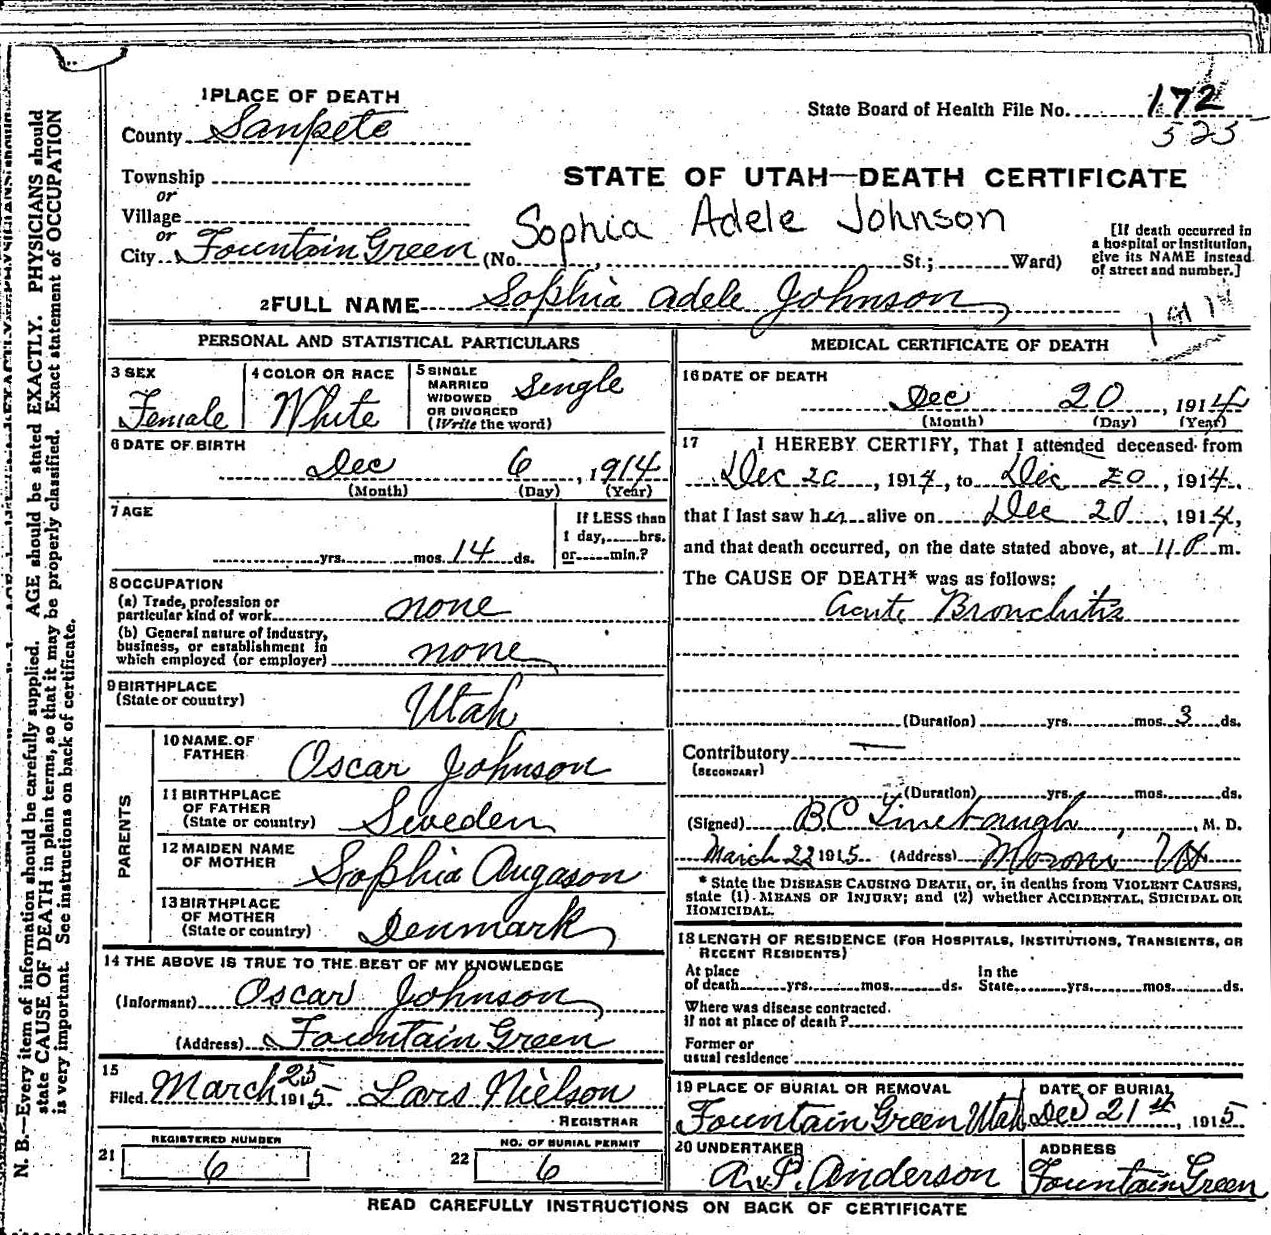 1 PLACE OF DEATH
County Sanpete
State Board of Health File No. 172
525
Township
or
Village
or
City Fountain Green (No. , St.; Ward)
STATE OF UTAH—DEATH CERTIFICATE
Sophia Adele Johnson
[If death occurred in
a hospital or institution,
give its NAME instead
of street and number.]
2 FULL NAME Sophia Adele Johnson
PERSONAL AND STATISTICAL PARTICULARS
3 SEX
Female
4 COLOR OR RACE
White
5 SINGLE
MARRIED
WIDOWED
OR DIVORCED
(Write the word)
Single
6 DATE OF BIRTH
Dec 6, 1914
(Month) (Day) (Year)
7 AGE
yrs. mos. 14 ds.
If LESS than
1 day, hrs.
or min.?
8 OCCUPATION
(a) Trade, profession or
particular kind of work none
(b) General nature of industry,
business, or establishment in
which employed (or employer) none
9 BIRTHPLACE
(State or country) Utah
PARENTS
10 NAME OF
FATHER Oscar Johnson
11 BIRTHPLACE
OF FATHER
(State or country) Sweden
12 MAIDEN NAME
OF MOTHER Sophia Augason
13 BIRTHPLACE
OF MOTHER
(State or country) Denmark
14 THE ABOVE IS TRUE TO THE BEST OF MY KNOWLEDGE
(Informant) Oscar Johnson
(Address) Fountain Green
15
Filed March 25 1915 Lars Nielson
REGISTRAR
REGISTERED NUMBER
21 6
NO. OF BURIAL PERMIT
22 6
MEDICAL CERTIFICATE OF DEATH
16 DATE OF DEATH
Dec 20, 1914
(Month) (Day) (Year)
17 I HEREBY CERTIFY, That I attended deceased from
Dec 20, 1914, to Dec 20, 1914,
that I last saw her alive on Dec 20, 1914,
and that death occurred, on the date stated above, at 11 P m.
The CAUSE OF DEATH* was as follows:
Acute Bronchitis
(Duration) yrs. mos. 3 ds.
Contributory —
(SECONDARY)
(Duration) yrs. mos. ds.
(Signed) B.C. Linebaugh, M. D.
March 22 1915 (Address) Moroni Ut
* State the DISEASE CAUSING DEATH, or, in deaths from VIOLENT CAUSES,
state (1) MEANS OF INJURY; and (2) whether ACCIDENTAL, SUICIDAL OR
HOMICIDAL.
18 LENGTH OF RESIDENCE (FOR HOSPITALS, INSTITUTIONS, TRANSIENTS, OR
RECENT RESIDENTS)
At place
of death yrs. mos. ds.
In the
State yrs. mos. ds.
Where was disease contracted.
if not at place of death?
Former or
usual residence
19 PLACE OF BURIAL OR REMOVAL
Fountain Green Utah
DATE OF BURIAL
Dec 21st, 1915
20 UNDERTAKER
A. P. Anderson
ADDRESS
Fountain Green
READ CAREFULLY INSTRUCTIONS ON BACK OF CERTIFICATE
N. B.—Every item of information should be carefully supplied. AGE should be stated EXACTLY. PHYSICIANS should
state CAUSE OF DEATH in plain terms, so that it may be properly classified. Exact statement of OCCUPATION
is very important. See instructions on back of certificate.